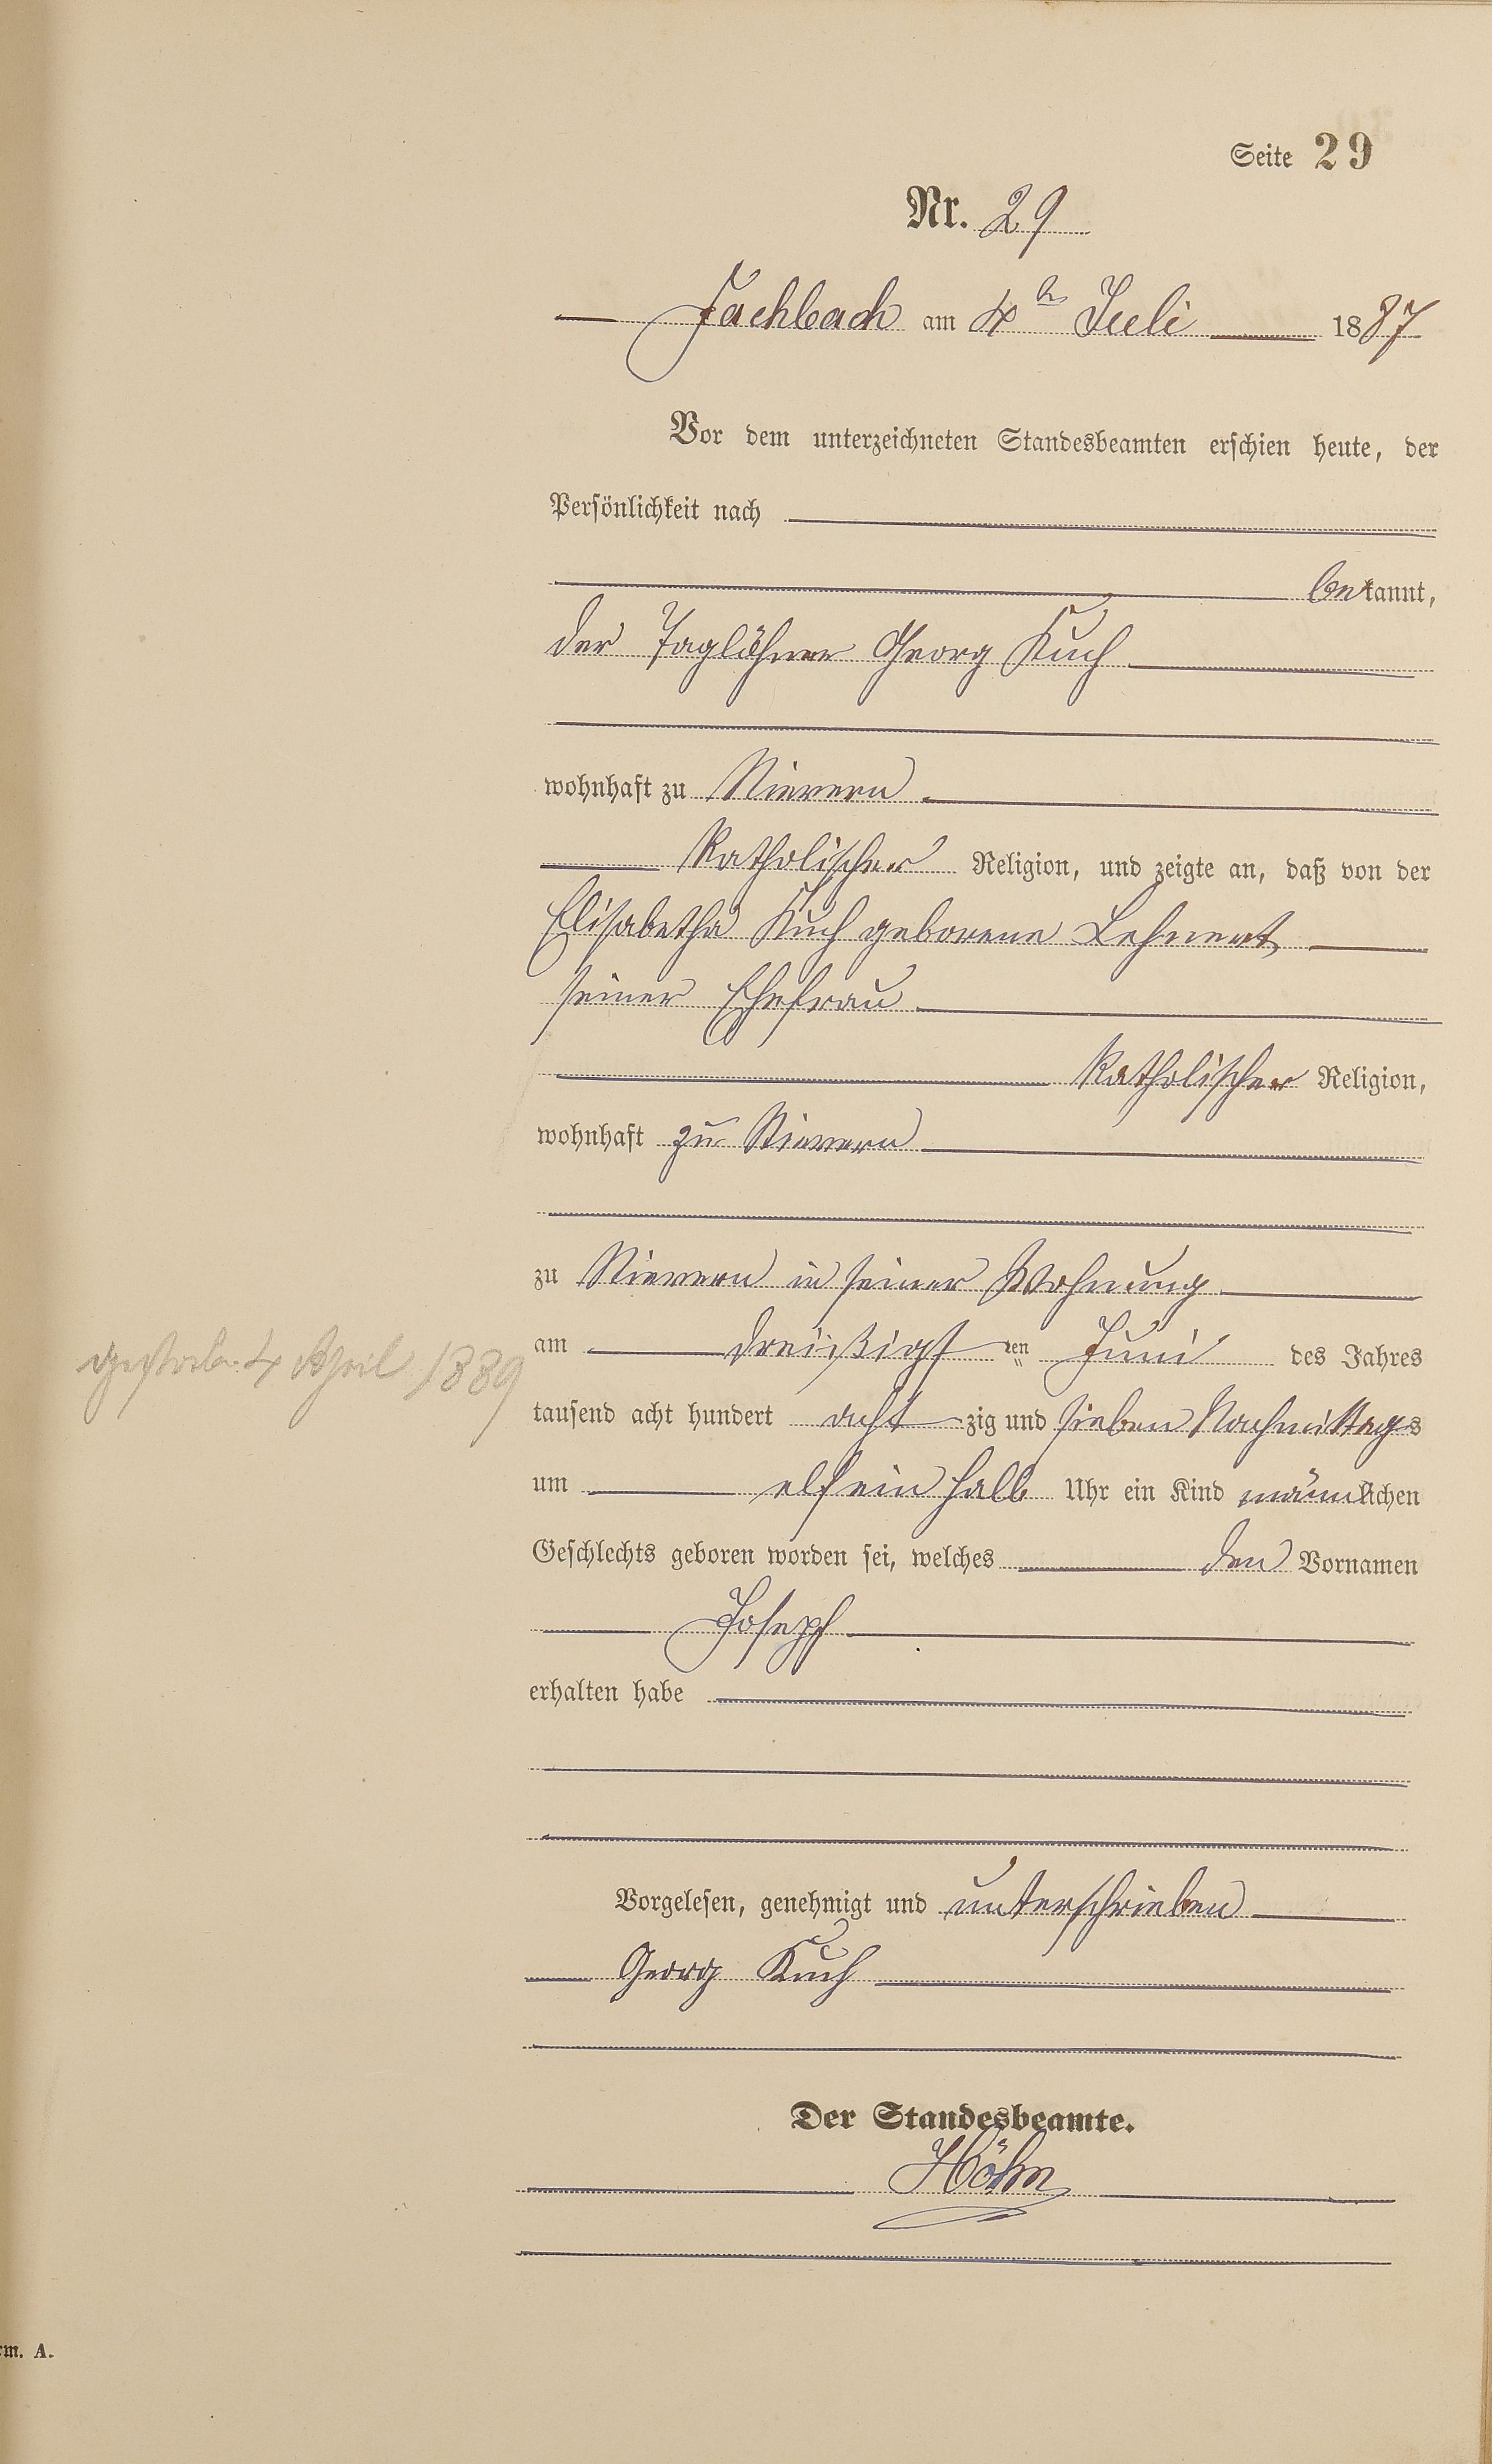 Seite 29
Nr. 29
Fachbach am 4ten Juli 1887
Vor dem unterzeichneten Standesbeamten erschien heute, der
Persönlichkeit nach
bekannt,
der Taglöhner Georg Kuch
wohnhaft zu Nievern
katholischer Religion, und zeigte an, daß von der
Elisabetha Kuch geborene Lehnert
seiner Ehefrau
katholischer Religion,
wohnhaft zu Nievern
zu Nievern in seiner Wohnung
am dreißigsten Juni des Jahres
gestorben 4 April 1889
tausend acht hundert achtzig und sieben Nachmittags
um elf ein halb Uhr ein Kind männlichen
Geschlechts geboren worden sei, welches den Vornamen
Joseph
erhalten habe
Vorgelesen, genehmigt und unterschrieben
Georg Kuch
Der Standesbeamte.
Höhn
rm. A.